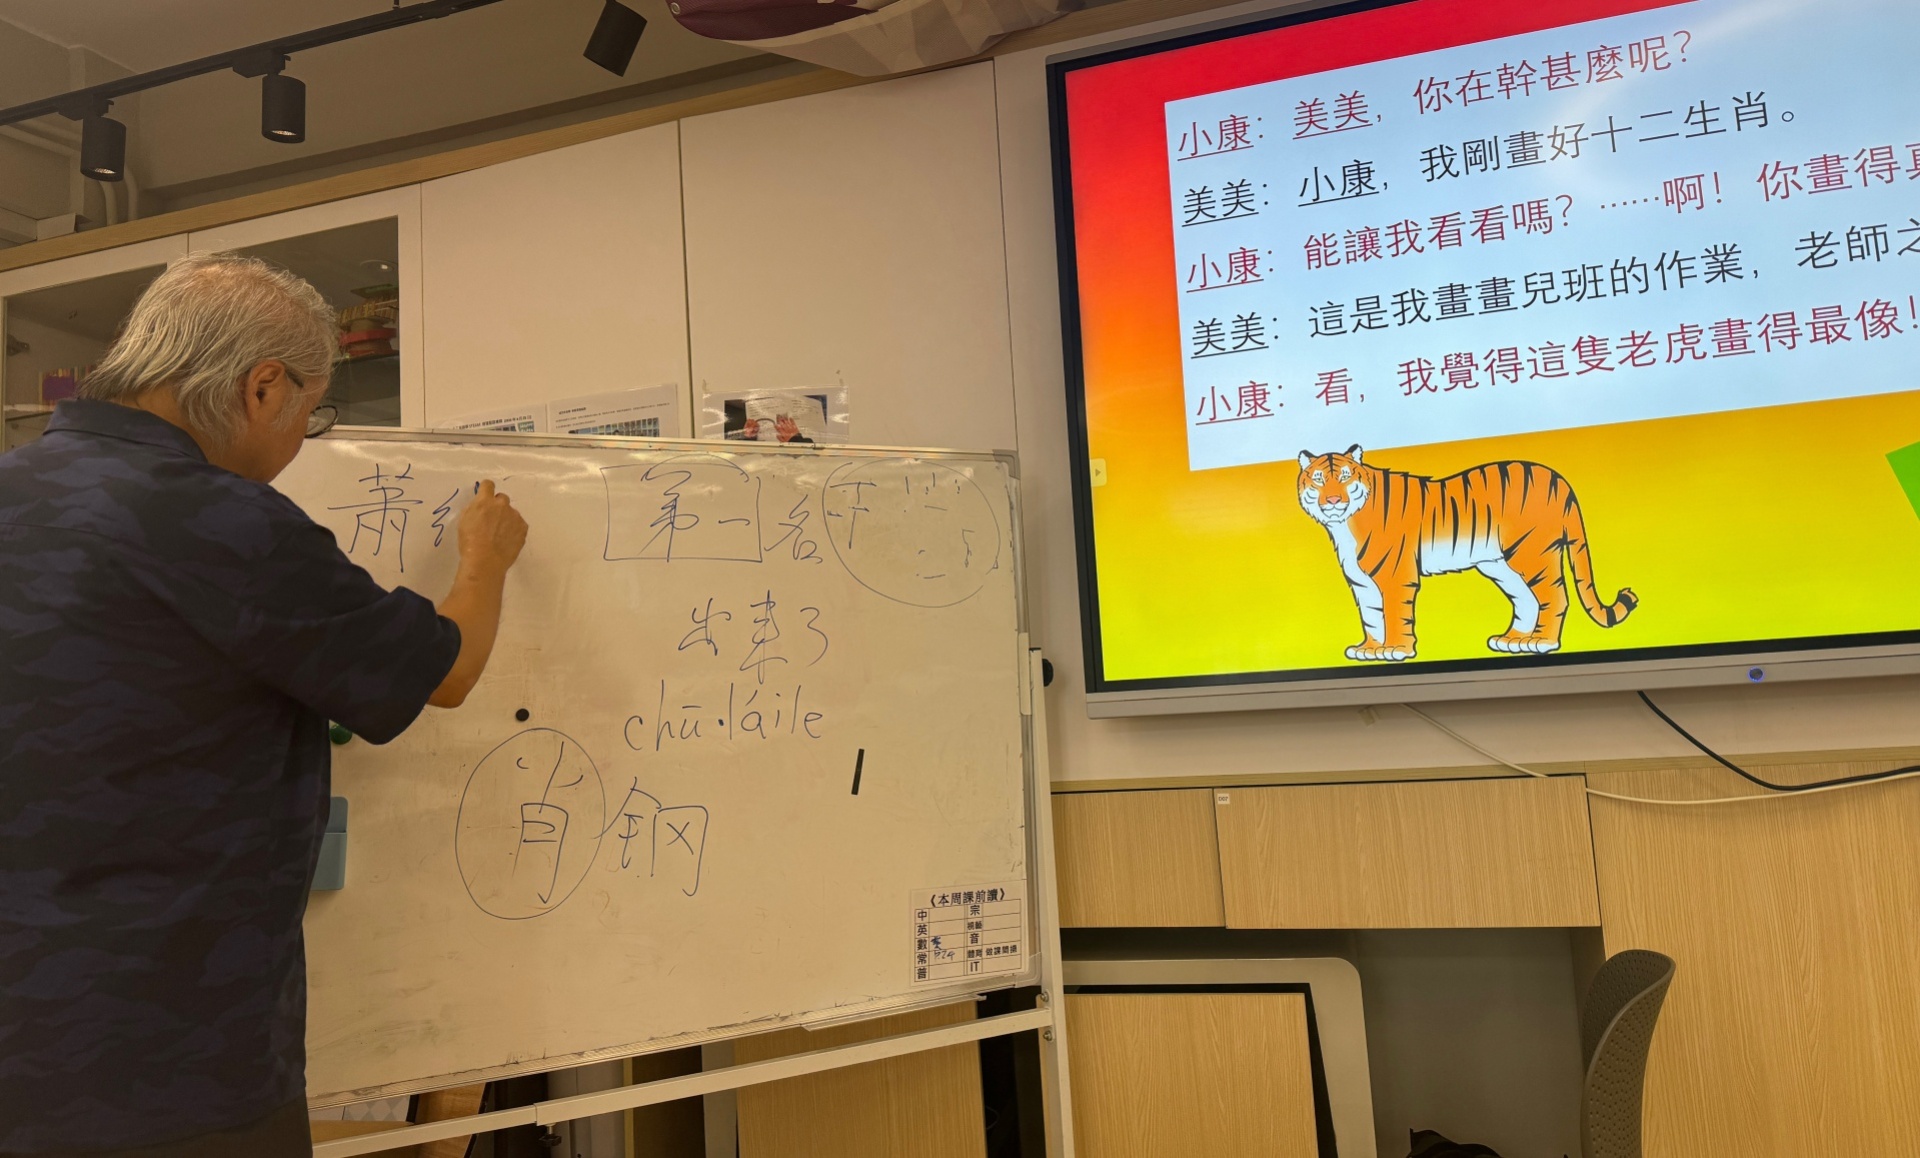 小康：美美，你在幹甚麼呢？
美美：小康，我剛畫好十二生肖。
小康：能讓我看看嗎？……啊！你畫得
美美：這是我畫畫兒班的作業，老師
小康：看，我覺得這隻老虎畫得最像！
萧
第一名
出来了
chū·láile
肖钢
《本周課前讀》
中
宗
英
視藝
數
音
常
體育
普
IT